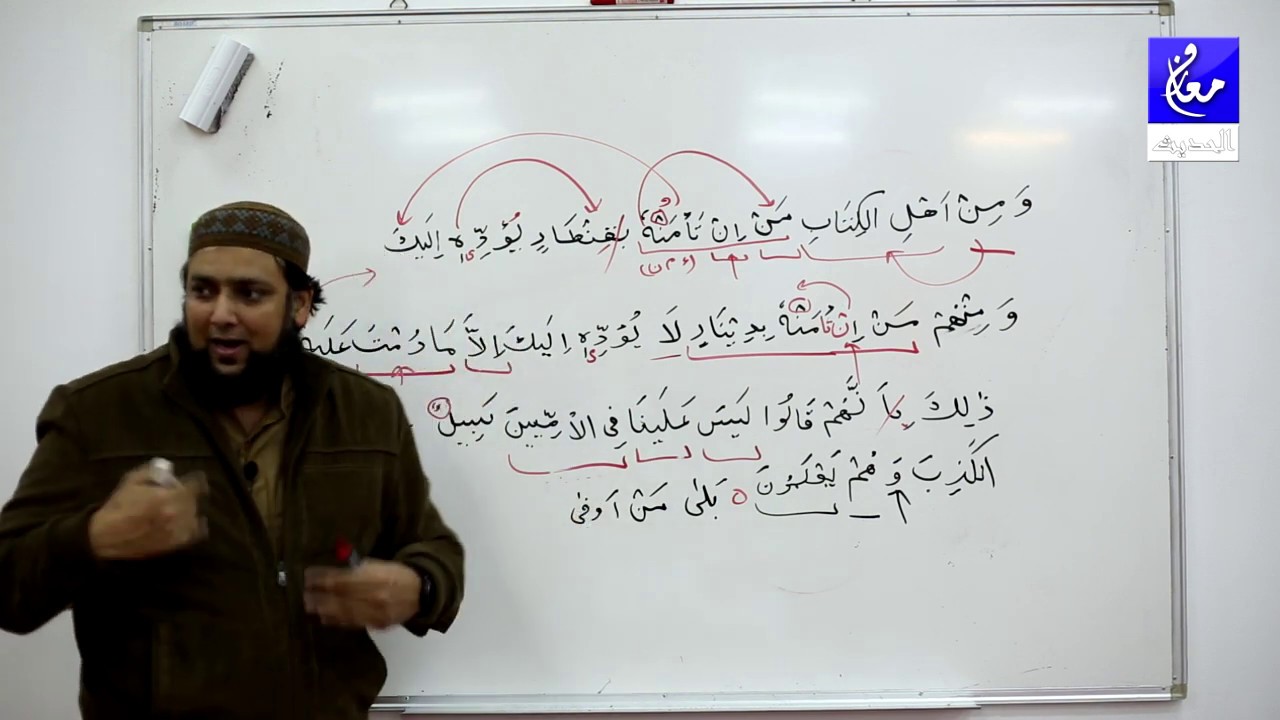 معارف
الحدیث
وَ مِنْ اَهْلِ الْكِتَابِ مَنْ اِنْ تَأْمَنْهُ بِقِنْطَارٍ يُؤَدِّهٖ اِلَيْكَ
(ء م ن)
وَ مِنْهُمْ مَنْ اِنْ تَأْمَنْهُ بِدِيْنَارٍ لَا يُؤَدِّهٖ اِلَيْكَ اِلَّا مَا دُمْتَ عَلَيْهِ
ذٰلِكَ بِاَنَّهُمْ قَالُوْا لَيْسَ عَلَيْنَا فِى الْاُمِّيّٖنَ سَبِيْلٌ
الْكَذِبَ وَ هُمْ يَعْلَمُوْنَ ٥ بَلٰى مَنْ اَوْفٰى